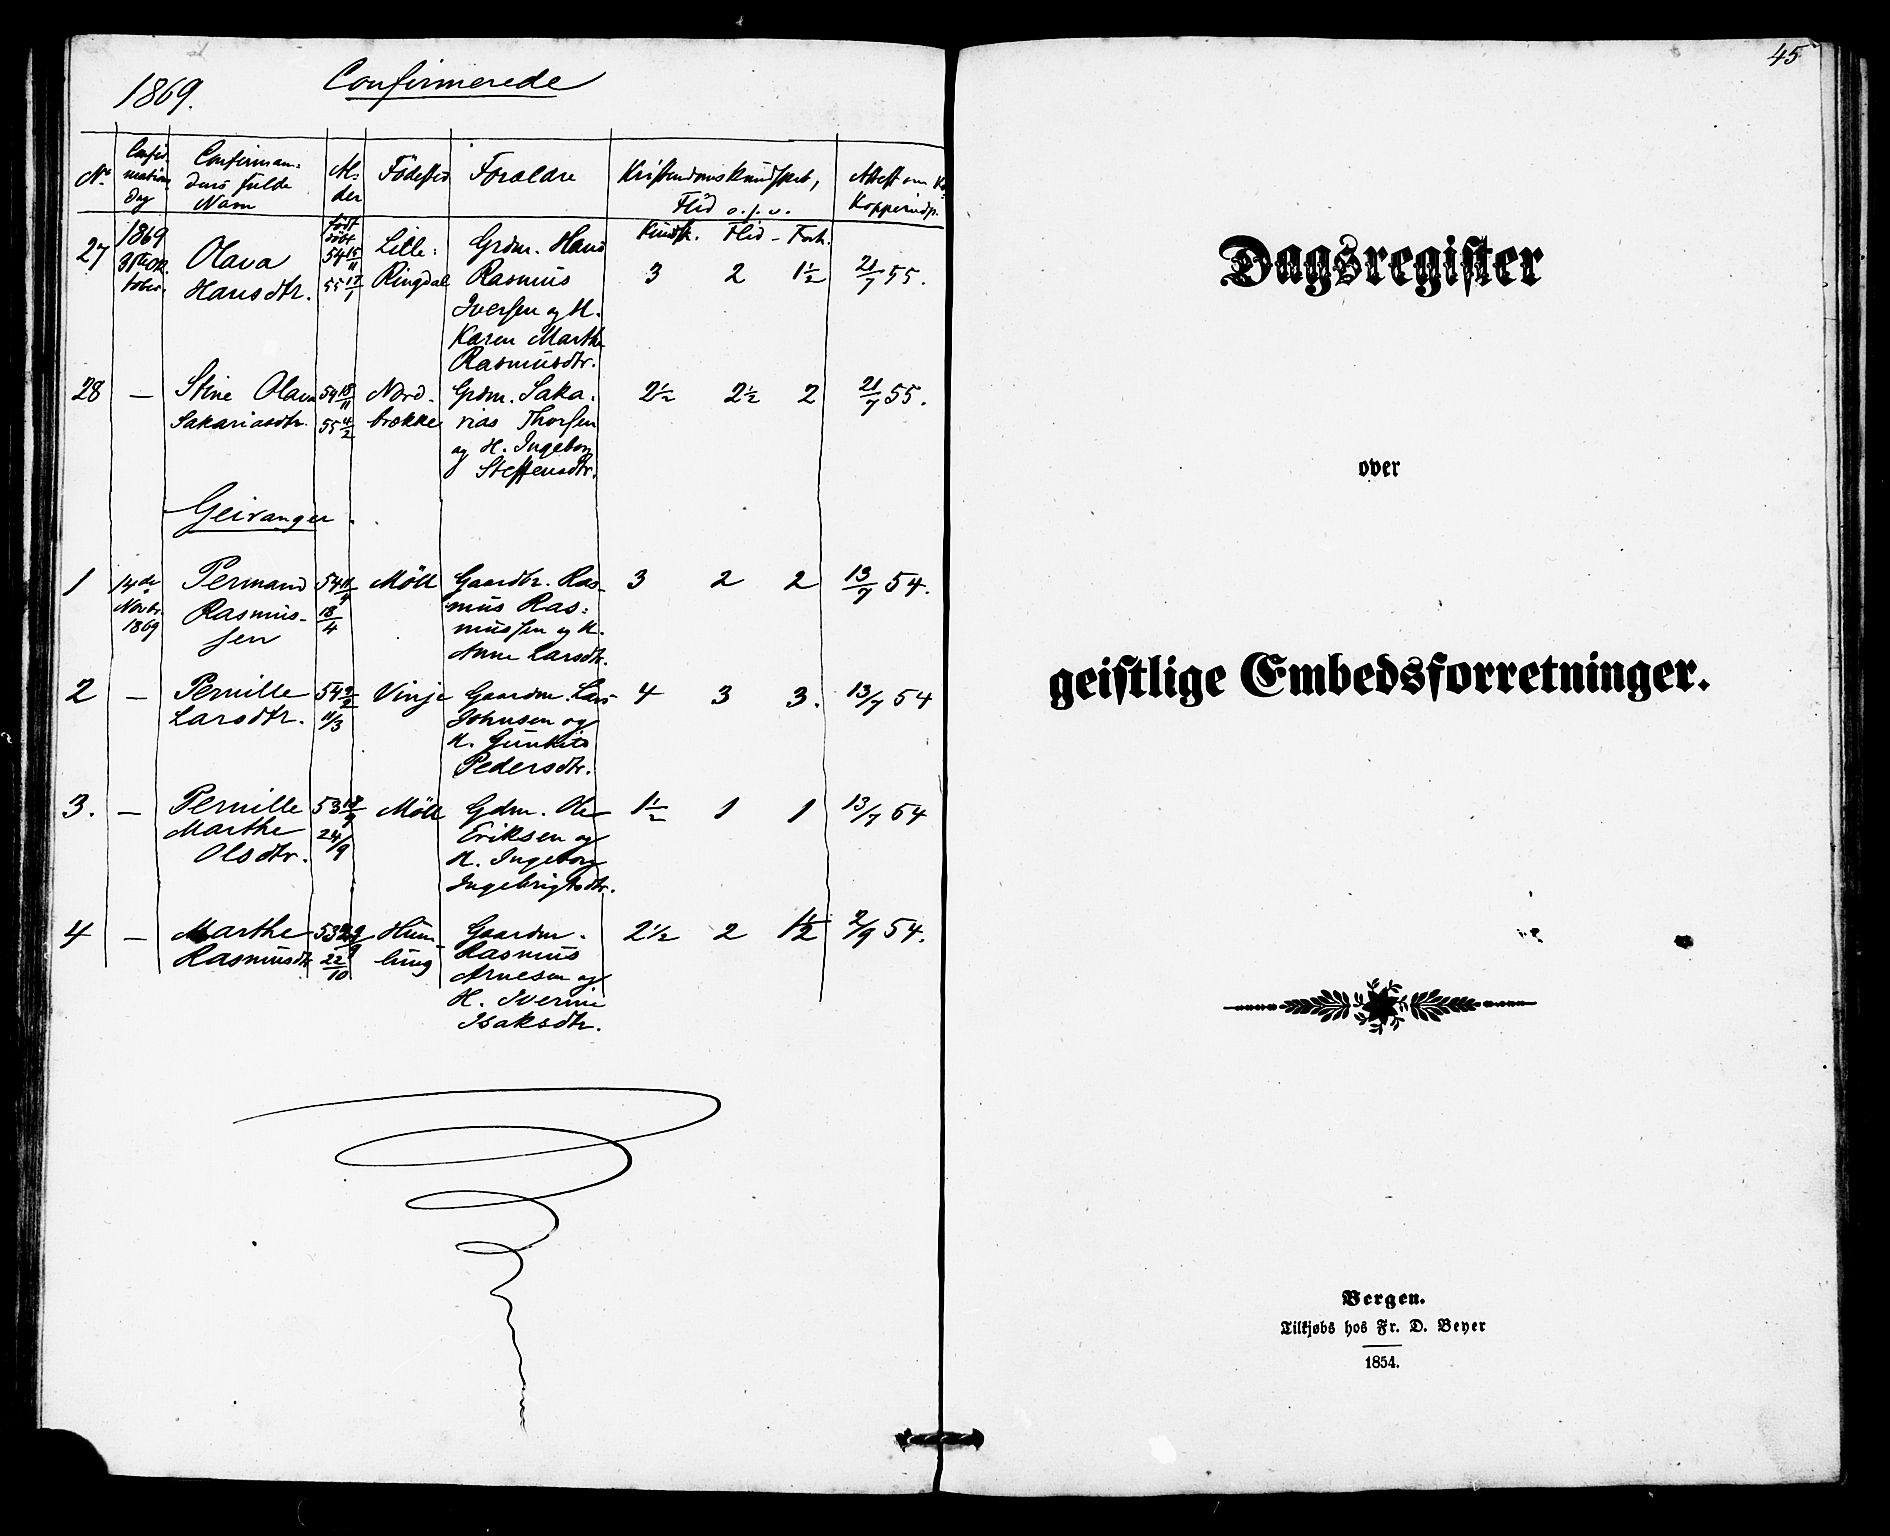 1869.
Confirmerede
No
Confir-
mations
dag
Confirman-
dens fulde
Navn
Al-
der
Födested
Forældre
Kristendomskundskab,
Flid o. s. v.
Attest om
Koppeindp.
1869
födt
döbt
Kundsk. Flid - Forh.
27
31te Ok-
tober.
Olava
Hansdtr.
54 15/11
55 17/1
Lille-
Ringdal
Grdm. Hans
Rasmus
Iversen og H.
Karen Marthe
Rasmusdtr.
3 2 1½ 21/7 55.
28 —
Stine Olava
Sakariasdtr.
54 18/11
55 4/2
Nord-
brække
Grdm. Saka-
rias Thorsen
og H. Ingeborg
Steffensdtr.
2½ 2½ 2 21/7 55.
Geiranger.
1
14de
Novbr.
1869
Permand
Rasmus-
sen
54
18/4
Möll
Gaardbr. Ras-
mus Ras-
mussen og H.
Anne Larsdtr.
3 2 2 13/7 54.
2 —
Pernille
Larsdtr.
54
11/3
Vinje
Gaardm. Lars
Johnsen og
H.
Pedersdtr.
4 3 3. 13/7 54
3. —
Pernille
Marthe
Olsdtr.
53
24/9
Möll
Gdm. Ole
Eriksen og
H. Ingeborg
Ingebrigtsdtr.
1½ 1 1 13/7 54
4 —
Marthe
Rasmusdtr
53 29/9
22/10
Hum-
lung
Gaardm.
Rasmus
Arnesen og
H. Iverine
Isaksdtr.
2½ 2 1½ 2/9 54.
45
Dagsregister
over
geistlige Embedsforretninger.
Bergen.
Tilkjøbs hos Fr. D. Beyer
1854.